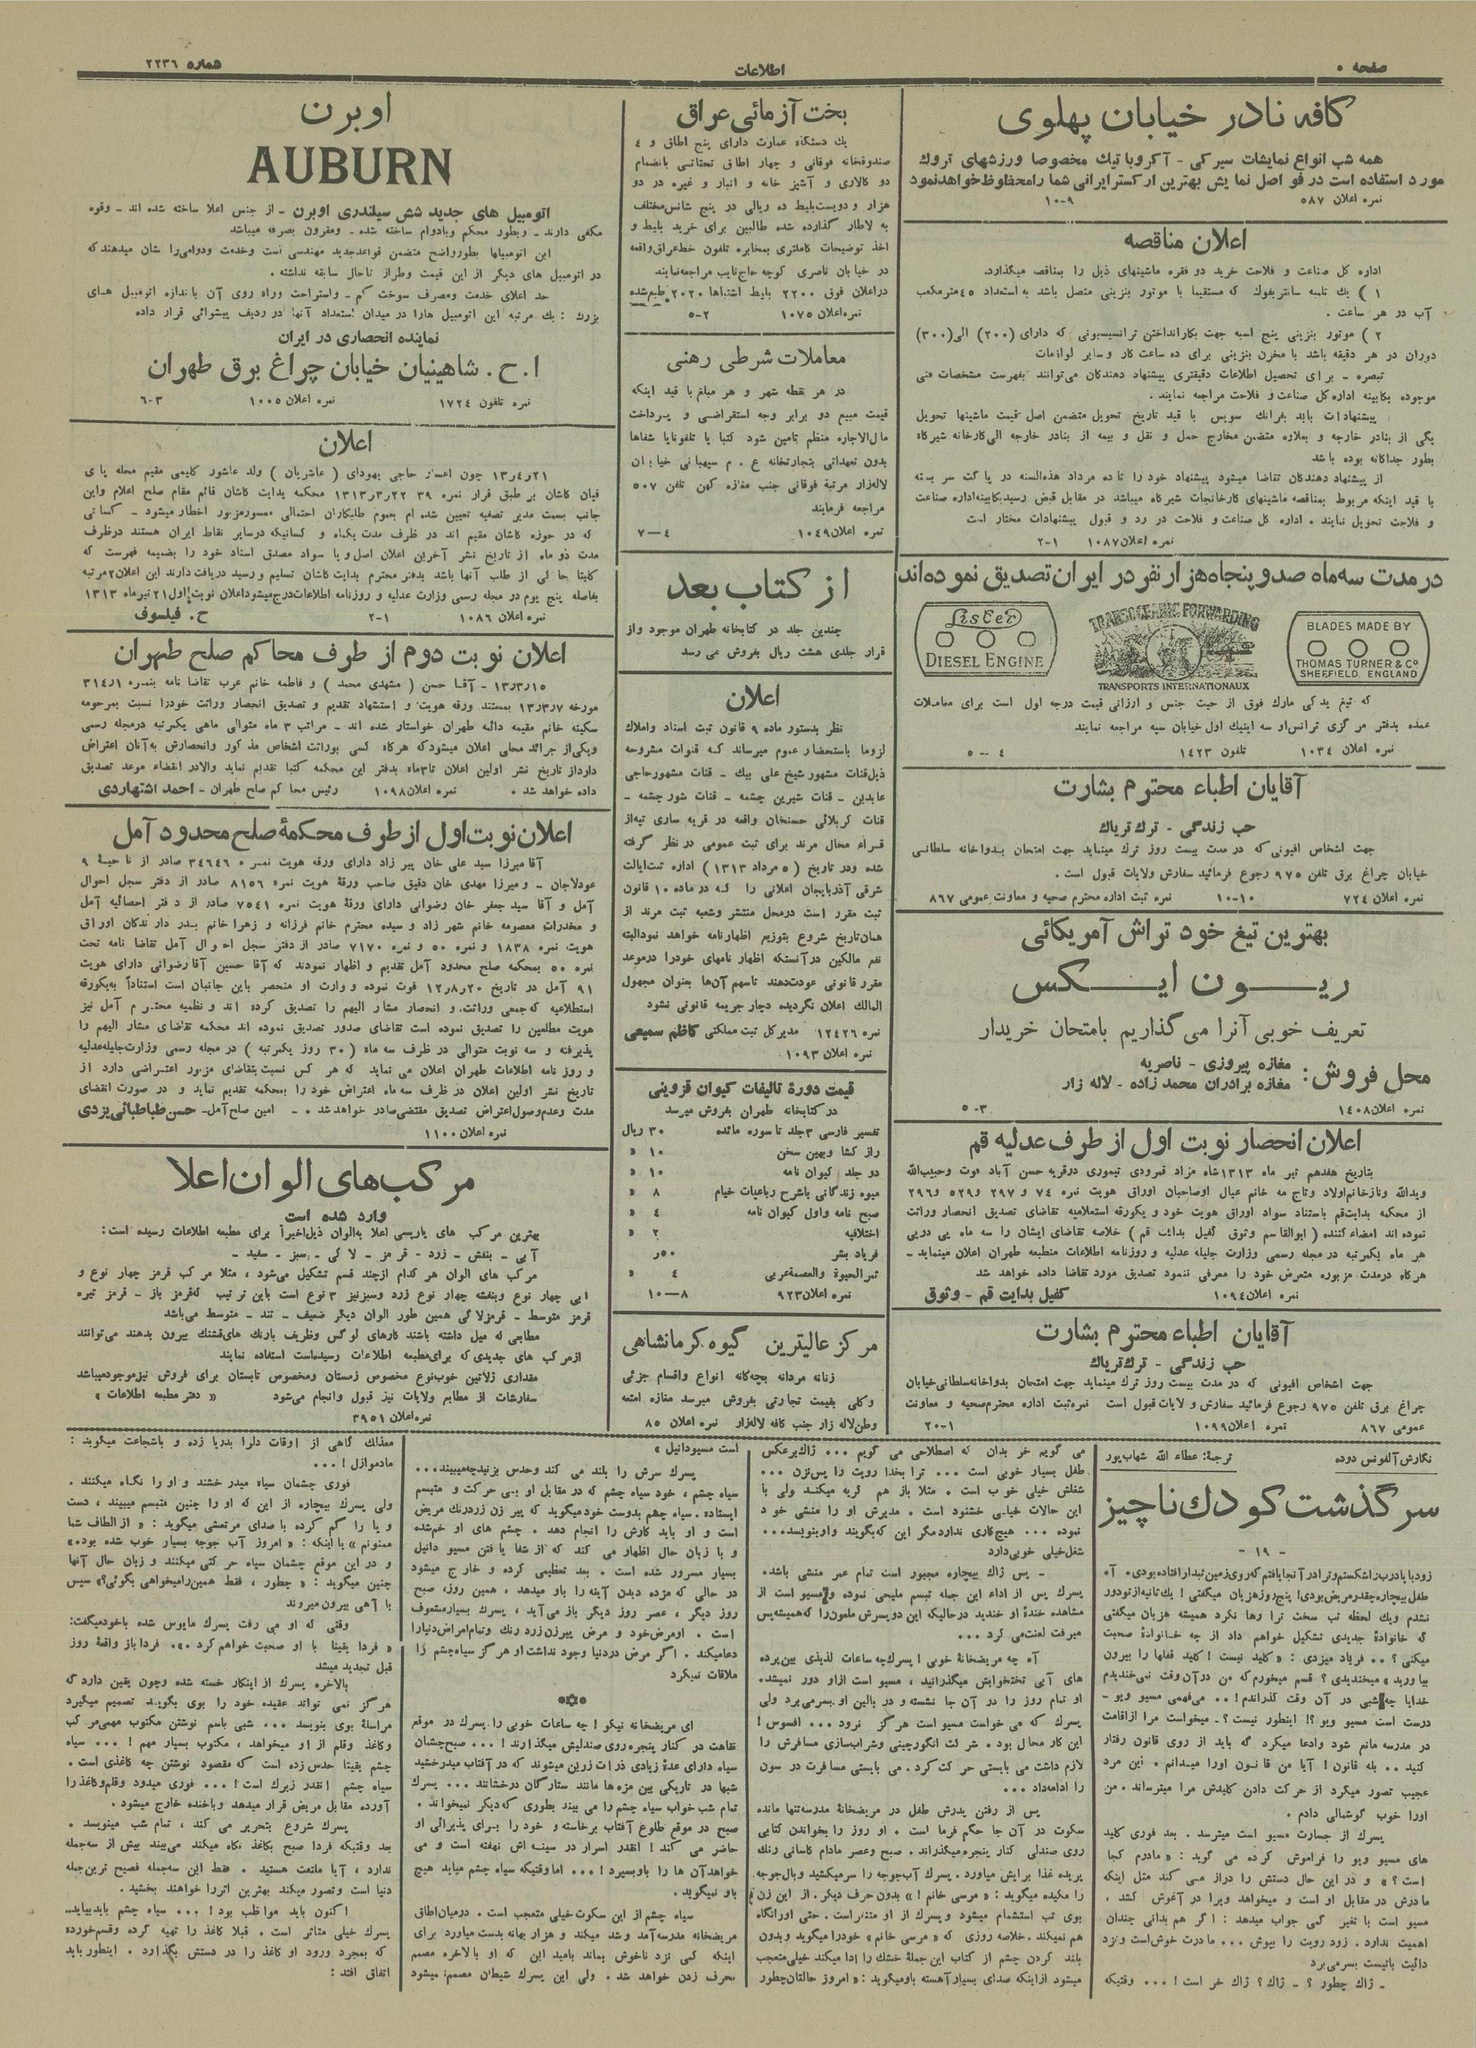 صفحه ۵
اطلاعات
شماره ۲۲۳۶
کافه نادر خیابان پهلوی
همه شب انواع نمایشات سیرکی - آکروباتیک مخصوصا ورزشهای تروک
مورد استفاده است در فواصل نمایش بهترین ارکستر ایرانی شما را محظوظ خواهد نمود
نمره اعلان ۵۸۷ ۹-۱۰
اعلان مناقصه
اداره کل صناعت و فلاحت خرید دو فقره ماشینهای ذیل را بمناقصه میگذارد.
۱) یک تلمبه سانتریفوک که مستقیما با موتور بنزینی متصل باشد به استعداد ۴۵ مترمکعب
آب در هر ساعت .
۲) موتور بنزینی پنج اسبه جهت بکارانداختن ترانسمیسیونی که دارای (۲۰۰) الی (۳۰۰)
دوران در هر دقیقه باشد با مخزن بنزینی برای ده ساعت کار و سایر لوازمات
تبصره - برای تحصیل اطلاعات دقیقتری پیشنهاد دهندگان می‌توانند بفهرست مشخصات فنی
موجوده بکابینه اداره کل صناعت و فلاحت مراجعه نمایند .
پیشنهادات باید بفرانک سویس با قید تاریخ تحویل متضمن اصل قیمت ماشینها تحویل
یکی از بنادر خارجه و بعلاوه متضمن مخارج حمل و نقل و بیمه از بنادر خارجه الی کارخانه شیرگاه
بطور جداگانه بوده باشد
از پیشنهاد دهندگان تقاضا میشود پیشنهاد خود را تا ده مرداد هذه‌السنه در پاکت سر بسته
با قید اینکه مربوط بمناقصه ماشینهای کارخانجات شیرگاه میباشد در مقابل قبض رسید بکابینه اداره صناعت
و فلاحت تحویل نمایند . اداره کل صناعت و فلاحت در رد و قبول پیشنهادات مختار است
نمره اعلان ۱۰۸۷ ۱-۲
در مدت سه ماه صد و پنجاه هزار نفر در ایران تصدیق نموده‌اند
BLADES MADE BY
THOMAS TURNER & Co
SHEFFIELD. ENGLAND
TRANSOCEANIC FORWARDING
TRANSPORTS INTERNATIONAUX
Lister
DIESEL ENGINE
که تیغ یدکی مارک فوق از حیث جنس و ارزانی قیمت درجه اول است برای معاملات
عمده بدفتر مرکزی ترانس‌اوسه‌اینیک اول خیابان سپه مراجعه نمایند
نمره اعلان ۱۰۳۴ تلفون ۱۴۲۳ ۴-۵
آقایان اطباء محترم بشارت
حب زندگی - ترک تریاک
جهت اشخاص افیونی که در مدت بیست روز ترک مینماید جهت امتحان بدواخانه سلطانی
خیابان چراغ برق تلفن ۹۷۵ رجوع فرمائید سفارش ولایات قبول است .
نمره اعلان ۷۲۴ ۱۰-۱۰ نمره ثبت اداره محترم صحیه و معاونت عمومی ۸۶۷
بهترین تیغ خود تراش آمریکائی
ریون ایکس
تعریف خوبی آنرا می گذاریم بامتحان خریدار
محل فروش: مغازه پیروزی - ناصریه
مغازه برادران محمد زاده - لاله زار
نمره اعلان ۱۴۰۸ ۳-۵
اعلان انحصار نوبت اول از طرف عدلیه قم
بتاریخ هفدهم تیر ماه ۱۳۱۳ شاه مراد قمرودی تیموری درقریه حسن آباد فوت و حبیب‌الله
از محکمه بدایت قم باستناد سواد اوراق هویت خود و یکورقه استعلامیه تقاضای تصدیق انحصار وراثت
نموده اند امضاء کننده ( ابوالقاسم وثوق کفیل بدایت قم ) خلاصه تقاضای ایشان را سه ماه پی در پی
هر ماه یکمرتبه در مجله رسمی وزارت جلیله عدلیه و روزنامه اطلاعات منطبعه طهران اعلان مینماید -
هرکاه درمدت مزبوره متعرض خود را معرفی ننمود تصدیق مورد تقاضا داده خواهد شد
نمره اعلان ۱۰۹۴ کفیل بدایت قم - وثوق
آقایان اطباء محترم بشارت
حب زندگی - ترک تریاک
جهت اشخاص افیونی که در مدت بیست روز ترک مینماید جهت امتحان بدواخانه سلطانی خیابان
چراغ برق تلفن ۹۷۵ رجوع فرمائید سفارش ولایات قبول است نمره ثبت اداره محترم صحیه و معاونت
عمومی ۸۶۷ نمره اعلان ۱۰۹۹ ۱-۲۰
بخت آزمائی عراق
یک دستگاه عمارت دارای پنج اطاق و ۴
صندوقخانه فوقانی و چهار اطاق تحتانی بانضمام
دو کالاری و آشپز خانه و انبار و غیره در دو
هزار و دویست بلیط ده ریالی در پنج شانس مختلف
به لاطار گذارده شده طالبین برای خرید بلیط و
اخذ توضیحات کاملتری بمخابره تلفون خط عراق واقعه
در خیابان ناصری کوچه حاج نایب مراجعه نمایند
در اعلان فوق ۲۲۰۰ بلیط اشتباها ۲۰۲۰ طبع شده
نمره اعلان ۱۰۷۵ ۲-۵
معاملات شرطی رهنی
در هر نقطه شهر و هر مبلغ با قید اینکه
قیمت مبیع دو برابر وجه استقراضی و پرداخت
مال‌الاجاره منظم تامین شود کتبا یا تلفونا یا شفاها
بدون تعهداتی بتجارتخانه ع . م سیهبانی خیابان
لاله‌زار مرتبة فوقانی جنب مغازه کهن تلفن ۵۰۷
مراجعه فرمایند
نمره اعلان ۱۰۴۹ ۴-۷
از کتاب بعد
چندین جلد در کتابخانه طهران موجود و از
قرار جلدی هشت ریال بفروش می رسد
اعلان
نظر بدستور ماده ۹ قانون ثبت اسناد و املاک
لزوما باستحضار عموم میرساند که قنوات مشروحه
ذیل قنات مشهور شیخ علی بیک - قنات مشهور حاجی
عابدین - قنات شیرین چشمه - قنات شور چشمه -
قنات کربلائی حسنخان واقعه در قریه ساری تپه از
قراء محال مرند برای ثبت عمومی در نظر گرفته
شده ودر تاریخ (۵ مرداد ۱۳۱۳) اداره ثبت ایالت
شرقی آذربایجان اعلانی را که در ماده ۱۰ قانون
ثبت مقرر است درمحل منتشر وشعبه ثبت مرند از
همان تاریخ شروع بتوزیع اظهارنامه خواهد نمود البته
نفع مالکین در آنستکه اظهار نامهای خودرا درموعد
مقرر قانونی عودت دهند تا سهم آن‌ها بعنوان مجهول
المالک اعلان نگردیده دچار جریمه قانونی نشود
نمره ۱۲۴۲۶ مدیرکل ثبت مملکتی کاظم سمیعی
نمره اعلان ۱۰۹۳
قیمت دوره تالیفات کیوان قزوینی
در کتابخانه طهران بفروش میرسد
تفسیر فارسی ۳ جلد تا سوره مائده ۳۰ ریال
راز گشا و بهین سخن ۱۰ «
دو جلد کیوان نامه ۱۰ «
میوه زندگانی با شرح رباعیات خیام ۸ «
صبح نامه و اول کیوان نامه ۴ «
اختلافیه ۲ «
فریاد بشر ۵۰ر
ثمرالحیوة والعصمة عربی ۴ «
نمره اعلان ۹۲۳ ۸-۱۰
مرکز عالیترین گیوه کرمانشاهی
زنانه مردانه بچه‌گانه انواع و اقسام جزئی
و کلی بقیمت تجارتی بفروش میرسد مغازه امتعه
وطن لاله زار جنب کافه لاله‌زار نمره اعلان ۸۵
اوبرن
AUBURN
اتومبیل های جدید شش سیلندری اوبرن - از جنس اعلا ساخته شده اند - وقوه
مکفی دارند - وبطور محکم وبادوام ساخته شده - ومقرون بصرفه میباشد
این اتومبیلها بطور واضح متضمن قواعد جدید مهندسی است وخدمت ودوامی را نشان میدهند که
در اتومبیل های دیگر از این قیمت وطراز تاحال سابقه نداشته .
حد اعلای خدمت ومصرف سوخت کم - واستراحت وراه روی آن باندازه اتومبیل های
بزرگ : یک مرتبه این اتومبیل هارا در میدان استعداد آنها در ردیف پیشوائی قرار داده
نماینده انحصاری در ایران
ا . ح . شاهینیان خیابان چراغ برق طهران
نمره تلفون ۱۷۲۴ نمره اعلان ۱۰۰۵ ۳-۶
اعلان
۱۳ر۴ر۲۱ چون اعسار حاجی یهودای ( عاشریان ) ولد عاشور کلیمی مقیم محله پای
جانب بسمت مدیر تصفیه تعیین شده ام بعموم طلبکاران احتمالی معسر مزبور اخطار میشود - کسانی
که در حوزه کاشان مقیم اند در ظرف مدت یکماه و کسانیکه درسایر نقاط ایران هستند در ظرف
مدت دو ماه از تاریخ نشر آخرین اعلان اصل و یا سواد مصدق اسناد خود را بضمیمه فهرست که
کتبا حاکی از طلب آنها باشد بدفتر محترم بدایت کاشان تسلیم و رسید دریافت دارند این اعلان ۲ مرتبه
بفاصله پنج یوم در مجله رسمی وزارت عدلیه و روزنامه اطلاعات درج میشود اعلان نوبت اول ۲۱ تیر ماه ۱۳۱۳
نمره اعلان ۱۰۸۶ ۱-۲ ح. فیلسوف
اعلان نوبت دوم از طرف محاکم صلح طهران
۱۳ر۳ر۱۵ - آقا حسن ( مشهدی محمد ) و فاطمه خانم عرب تقاضا نامه بنمره ۳۱۴۱
مورخه ۱۳ر۳ر۷ بمستند ورقه هویت و استشهاد تقدیم و تصدیق انحصار وراثت خودرا نسبت بمرحومه
سکینه خانم مقیمه دائمه طهران خواستار شده اند - مراتب ۳ ماه متوالی ماهی یکمرتبه درمجله رسمی
ویکی از جرائد محلی اعلان میشود که هرگاه کسی بوراثت اشخاص مذکور و انحصارش به آنان اعتراض
دارد از تاریخ نشر اولین اعلان تا ۳ ماه بدفتر این محکمه کتبا تقدیم نماید والا در انقضاء موعد تصدیق
داده خواهد شد . نمره اعلان ۱۰۹۸ رئیس محاکم صلح طهران - احمد اشتهاردی
اعلان نوبت اول از طرف محکمهٔ صلح محدود آمل
آقا میرزا سید علی خان پیر زاد دارای ورقه هویت نمره ۳۴۶۴۶ صادر از ناحیه ۹
عودلاجان - و میرزا مهدی خان دقیق صاحب ورقهٔ هویت نمره ۸۱۵۶ صادر از دفتر سجل احوال
آمل و آقا سید جعفر خان رضوانی دارای ورقهٔ هویت نمره ۷۵۴۱ صادر از دفتر احصائیه آمل
و مخدرات معصومه خانم شهر زاد و سیده محترم خانم فرزانه و زهرا خانم
هویت نمره ۱۸۳۸ و نمره ۵۰ و نمره ۷۱۷۰ صادر از دفتر سجل احوال آمل تقاضا نامه تحت
نمره ۵۰ بمحکمه صلح محدود آمل تقدیم و اظهار نمودند که آقا حسین آقا رضوانی دارای هویت
۹۱ آمل در تاریخ ۱۲ر۸ر۲۰ فوت نموده و وارث او منحصر باین جانبان است استناداً به یکورقه
استعلامیه که جمعی وراثت و انحصار مشار الیهم را تصدیق کرده اند و نظمیه محترم آمل نیز
هویت مطلعین را تصدیق نموده است تقاضای صدور تصدیق نموده اند محکمه تقاضای مشار الیهم را
پذیرفته و سه نوبت متوالی در ظرف سه ماه ( ۳۰ روز یکمرتبه ) در مجله رسمی وزارت جلیله عدلیه
و روز نامه اطلاعات طهران اعلان می نماید که هر کس نسبت بتقاضای مزبور اعتراضی دارد از
تاریخ نشر اولین اعلان در ظرف سه ماه اعتراض خود را بمحکمه تقدیم نماید و در صورت انقضای
مدت و عدم وصول اعتراض تصدیق مقتضی صادر خواهد شد . - امین صلح آمل - حسن طباطبائی یزدی
نمره اعلان ۱۱۰۰
مرکب‌های الوان اعلا
وارد شده است
بهترین مرکب های پاریسی اعلا به الوان ذیل اخیراً برای مطبعه اطلاعات رسیده است :
آبی - بنفش - زرد - قرمز - لاکی - سبز - سفید -
مرکب های الوان هر کدام از چند قسم تشکیل می‌شود ، مثلا مرکب قرمز چهار نوع و
ابی چهار نوع و بنفشه چهار نوع زرد و سبز نیز ۳ نوع است باین ترتیب که قرمز باز - قرمز تیره
قرمز متوسط - قرمز لاکی همین طور الوان دیگر ضعیف - تند - متوسط می‌باشد
مطابعی که میل داشته باشند کارهای لوکس و ظریف با رنگ های قشنگ بیرون بدهند می‌توانند
از مرکب های جدیدی که برای مطبعه اطلاعات رسیده است استفاده نمایند
مقداری ژلاتین خوب نوع مخصوص زمستان و مخصوص تابستان برای فروش نیز موجود میباشد
سفارشات از مطابع ولایات نیز قبول و انجام می‌شود « دفتر مطبعه اطلاعات »
نمره اعلان ۳۹۵۱
نگارش آلفونس دوده ترجمهٔ: عطاء الله شهاب‌پور
سرگذشت کودک ناچیز
- ۱۹ -
زود با یا درب را شکستم و ترا در آنجا یافتم که روی زمین تبدار افتاده بودی. آه
طفل بیچاره چقدر مریض بودی! پنج روز هزیان میگفتی! یک ثانیه از تو دور
نشدم ویک لحظه تب سخت ترا وها نکرد همیشه هزیان میگفتی
که خانوادهٔ جدیدی تشکیل خواهم داد از چه خانوادهٔ صحبت
میکنی ؟ .. فریاد میزدی : «کلید نیست! کلید قفلها را بیرون
بیاورید» میخندیدی؟ قسم میخورم که من در آن وقت نمی‌خندیدم
خدایا چه شبی در آن وقت گذراندم! .. می‌فهمی مسیو ویو -
درست است مسیو ویو ؟! اینطور نیست؟ - میخواست مرا از اقامت
در مدرسه مانع شود و ادعا میکرد که باید از روی قانون رفتار
کنید .. بله قانون! آیا من قانون اورا میدانم . این مرد
عجیب تصور میکرد از حرکت دادن کلیدش مرا میترساند . من
اورا خوب گوشمالی دادم .
پسرک از جسارت مسیو است میترسد . بعد فوری کلید
های مسیو ویو را فراموش کرده می گوید : « مادرم کجا
است ؟ » و در این حال دستش را دراز می کند مثل اینکه
مادرش در مقابل او است و میخواهد ویرا در آغوش کشد .
مسیو است با تغیر کمی جواب میدهد : اگر هم بدانی چندان
اهمیت ندارد . زود رویت را بپوش ... مادرت خوش است و نزد
دائیت باتیست بسر می برد
- ژاک چطور ؟ - ژاک؟ ژاک خر است! ... وقتیکه
می گویم خر بدان که اصطلاحی می گویم ... ژاک برعکس
طفل بسیار خوبی است ... ترا بخدا رویت را پس نزن ...
شغلش خیلی خوب است . مثلا باز هم گریه میکند ولی با
این حالات خیلی خشنود است . مدیرش او را منشی خود
نموده ... هیچ کاری ندارد مگر این که بگویند و او بنویسد...
شغل خیلی خوبی دارد
- پس ژاک بیچاره مجبور است تمام عمر منشی باشد .
پسرک پس از اداء این جمله تبسم ملیحی نموده و مسیو است از
مشاهده خندهٔ او خندید در حالیکه این دو پسرش ملعون را که همیشه پس
میرفت لعنت می کرد ...
آه چه مریضخانهٔ خوبی! پسرک چه ساعات لذیذی بین پرده
های آبی تختخوابش میگذرانید ، مسیو است از او دور نمیشد.
او تمام روز را در آن جا نشسته و در بالین او بسر می برد ولی
پسرک که می خواست مسیو است هرگز نرود ... افسوس!
این کار محال بود . شرکت انگورچینی و شراب‌سازی مسافرش را
لازم داشت می بایستی حرکت کرد . می بایستی مسافرت در سون
را ادامه داد ...
پس از رفتن پدرش طفل در مریضخانهٔ مدرسه تنها مانده
سکوت در آن جا حکم فرما است . او روز را بخواندن کتابی
روی صندلی کنار پنجره میگذراند . صبح و عصر مادام کاسانی رنگ
پریده غذا برایش میاورد . پسرک آب جوجه را سر میکشید و بال جوجه
را مکیده میگوید : « مرسی خانم! » بدون حرف دیگر . از این زن
بوی تب استشمام میشود و پسرک از او متنفر است . حتی اورا نگاه
هم نمیکند . خلاصه روزی که « مرسی خانم » خودرا میگوید و بدون
بلند کردن چشم از کتاب این جملهٔ خشک را ادا میکند خیلی متعجب
میشود از اینکه صدای بسیار آهسته باو میگوید : « امروز حالتان چطور
است مسیو دانیل »
پسرک سرش را بلند می کند و حدس بزنید چه میبیند...
سیاه چشم ، خود سیاه چشم که در مقابل او بی حرکت و متبسم
ایستاده . سیاه چشم بدوست خود میگوید که پیر زن زرد رنک مریض
است و او باید کارش را انجام دهد . چشم های او خم شده
و با زبان حال اظهار می کند که از شفا یافتن مسیو دانیل
بسیار مسرور شده است . بعد تعظیمی کرده و خارج میشود
در حالی که مژده دیدن آینه را باو میدهد ، همین روز، صبح
روز دیگر ، عصر روز دیگر باز می‌آید ، پسرک بسیار مشعوف
است . او مرض خود و مرض پیر زن زرد رنگ و تمام امراض دنیارا
دعا میکند . اگر مرض در دنیا وجود نداشت او هرگز سیاه چشم را
ملاقات نمیکرد
ای مریضخانه نیکو! چه ساعات خوبی را پسرک در موقع
نقاهت در کنار پنجره روی صندلیش میگذارند! ... صبح چشمان
سیاه دارای عدهٔ زیادی ذرات زرین میشوند که در آفتاب میدرخشید
شبها در تاریکی بین مژه ها مانند ستارگان درخشانند ... پسرک
تمام شب خواب سیاه چشم را می بیند بطوری که دیگر نمیخواند .
صبح در موقع طلوع آفتاب برخاسته و خود را برای پذیرائی او
حاضر می کند! انقدر اسرار در سینه اش نهفته است و می
خواهد آن ها را باو بسپرد! ... اما وقتیکه سیاه چشم میاید هیچ
باو نمیگوید .
سیاه چشم از این سکوت خیلی متعجب است . درمیان اطاق
مریضخانه مدرسه آمد و شد میکند و هزار بهانه بدست میاورد برای
اینکه کمی نزد ناخوش بماند بامید این که او بالاخره مصمم
بحرف زدن خواهد شد . ولی این پسرک شیطان مصمم نمیشود
معذالک گاهی از اوقات دلرا بدریا زده و باشجاعت میگوید :
مادموازل! ...
فوری چشمان سیاه میدرخشند و او را نگاه میکنند .
ولی پسرک بیچاره از این که او را چنین متبسم میبیند ، دست
و پا را گم کرده با صدای مرتعشی میگوید : « از الطاف شما
ممنونم » یا اینکه : « امروز آب جوجه بسیار خوب شده بود.»
و در این موقع چشمان سیاه حرکتی میکنند و زبان حال آنها
چنین میگوید : « چطور ، فقط همین را میخواهی بگوئی؟» سپس
با آهی بیرون میروند
وقتی که او می رفت پسرک مایوس شده با خود میگفت:
« فردا یقینا با او صحبت خواهم کرد .». فردا باز واقعهٔ روز
قبل تجدید میشد
بالاخره پسرک از اینکار خسته شده و چون یقین دارد که
هرگز نمی تواند عقیده خود را بوی بگوید تصمیم میگیرد
مراسلهٔ بوی بنویسد ... شبی باسم نوشتن مکتوب مهمی مرکب
و کاغذ و قلم از او میخواهد ، مکتوب بسیار مهم! ... سیاه
چشم یقینا حدس زده است که مقصود نوشتن چه کاغذی است .
سیاه چشم انقدر زیرک است! ... فوری میدود و قلم و کاغذ را
آورده مقابل مریض قرار میدهد و باخنده خارج میشود .
پسرک شروع بتحریر می کند ، تمام شب مینویسد .
بعد وقتیکه فردا صبح بکاغذ نگاه میکند می‌بیند بیش از سه جمله
ندارد ، آیا ملتفت هستید . فقط این سه جمله فصیح ترین جمله
دنیا است و تصور میکند بهترین اثر را خواهند بخشید .
اکنون باید مواظب بود! ... سیاه چشم باید بیاید...
پسرک خیلی متاثر است . قبلا کاغذ را تهیه کرده و قسم خورده
که بمجرد ورود او کاغذ را در دستش بگذارد . اینطور باید
اتفاق افتد :